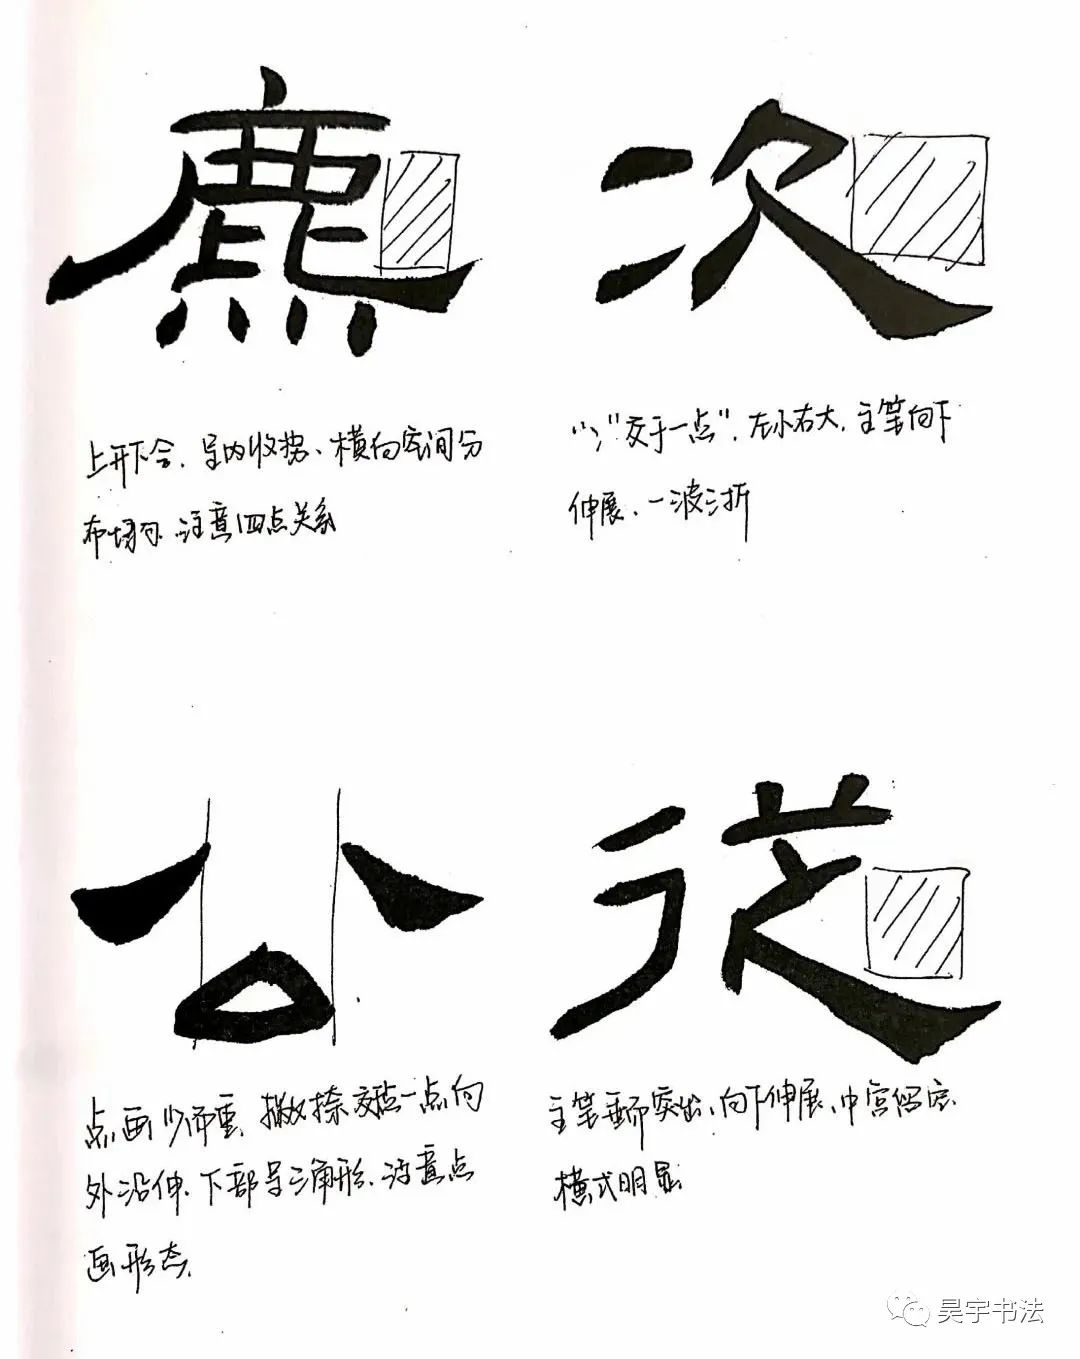 麃 次
上开下合、呈内收势、横向空间分
布均匀、注意四点关系
"氵"交于一点"、左小右大、主笔向下
伸展、一波三折
公 從
点画少而重、撇捺交点一点向
外沿伸、下部呈三角形、注意点
画形态、
主笔重而突出、向下伸展、中宫留空、
横式明显
昊宇书法